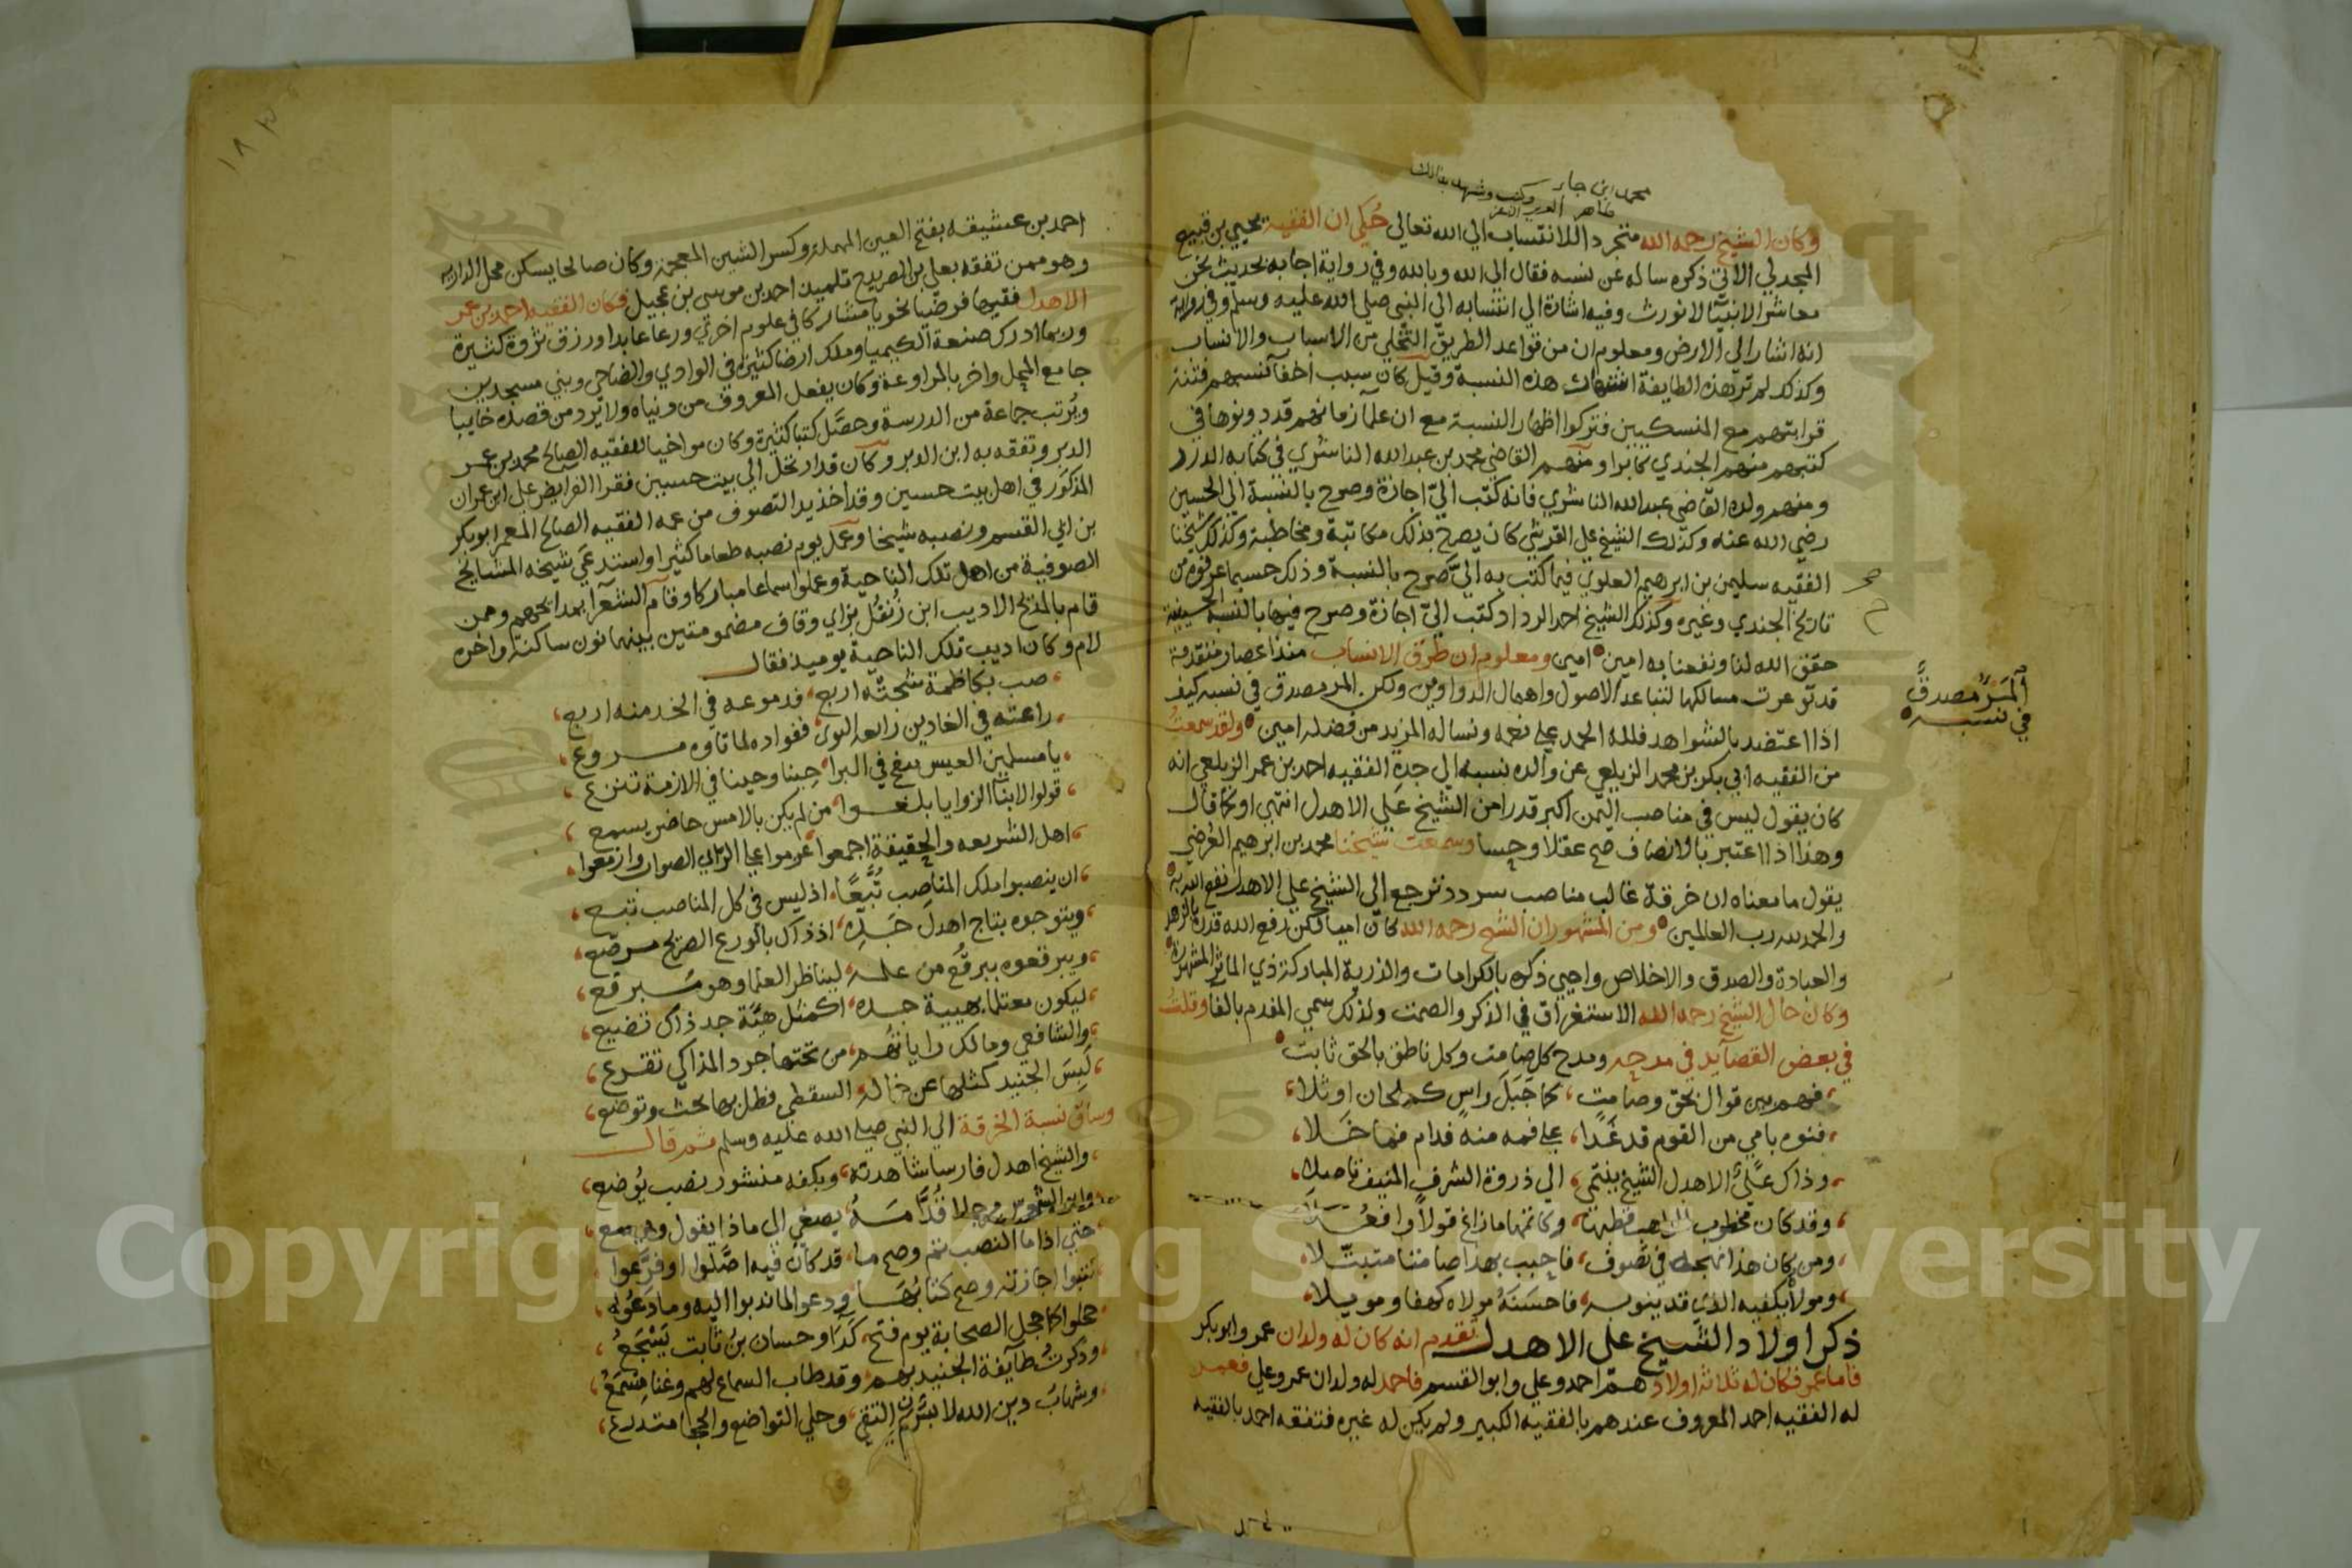 محمد ابن جابر وكتب وشهد بذلك
طاهر
وكان الشيخ رحمه الله متجردا للانتساب الي الله تعالي حُكي ان الفقيه يحيي بن قبيع
المجدلي الاتي ذكره ساله عن نسبه فقال الي الله وبالله وفي رواية اجابه بحديث نحن
معاشر الانبيا لا نورث وفيه اشارة الي انتسابه الي النبي صلي الله عليه وسلم وفي رواية
انه اشار الي الارض ومعلوم ان من قواعد الطريق التخلي من الاسباب والانساب
وكذلك لم تر هذه الطايفة اشتهار هذه النسبة وقيل كان سبب اخفآ نسبهم فتنة
قرابتهم مع المنسكيين فتركوا اظهار النسبة مع ان علما زمانهم قد دونوها في
كتبهم منهم الجندي كما تراه ومنهم القاضي محمد بن عبد الله الناشري في كتابه الدرر
ومنهم ولده القاضي عبد الله الناشري فانه كتب الي اجازة وصرح بالنسبة الي الحسين
رضي الله عنه وكذلك الشيخ علي القرشي كان يصرح بذلك مكاتبة ومخاطبة وكذلك شيخنا
الفقيه سليمن بن ابرهيم العلوي فيما كتب به الي صرح بالنسبة وذلك حسبما عرفوه من
تاريخ الجندي وغيره وكذلك الشيخ احمد الرداد كتب الي اجازة وصرح فيها بالنسبة الحسينية
حقق الله لنا ونفعنا به امين امين ومعلوم ان طرق الانساب منذ اعصار متقدمة
قد توعرت مسالكها لتباعد الاصول واهمال الدواوين ولكن المرء مصدق في نسبه كيف
المَرْء مصدقٌ
في نسبه
اذا اعتضد بالشواهد فلله الحمد علي نعمه ونساله المزيد من فضله امين ولقد سمعتُ
من الفقيه ابي بكر بن محمد الزيلعي عن والده نسبه الي جده الفقيه احمد بن عمر الزيلعي انه
كان يقول ليس في مناصب اليمن اكبر قدرا من الشيخ علي الاهدل انتهي او كما قال
وهذا اذا اعتبر بالانصاف صح عقلا وحسا وسمعت شيخنا محمد بن ابرهيم العُرضي
يقول ما معناه ان خرقة غالب مناصب سردد ترجع الي الشيخ علي الاهدل نفع الله به
والحمد لله رب العالمين ومن المشهور ان الشيخ رحمه الله كان اميا لكن رفع الله قدره بالزهد
والعبادة والصدق والاخلاص واحيي ذكره بالكرامات والذرية المباركة ذي الماثر المشهورة
وكان حال الشيخ رحمه الله الاستغراق في الذكر والصمت ولذلك سمي المفدم بالفا وقلتُ
في بعض القصآيد في مدحه ومدح كل صامت وكل ناطق بالحق ثابت
فهم بين قوال بحق وصامت كما جَبَلَ راسٍ كم لحان اوتلا
فنوه باميٍ من القوم قد غَدا علي فمه منه فدام فما خَلا
وذاك علَيّ الاهدل الشيخ ينتمي الي ذروة الشرف المنيف تاصلا
وقد كان مخطوب المذاهب قطبها وكاتمها ما زاغ قولاً وافعُلا
ومن كان هذا نهجه في تصوف فاحبب بهذا صامتا متبتّلا
ومولاً يكفيه الذي قد ينوبه فاحسَنَهُ مولاه كهفا ومويلا
ذكر اولاد الشيخ علي الاهدل تقدم انه كان له ولدان عمر وابو بكر
فاما عمر فكان له ثلاثة اولاد هم احمد وعلي وابو القسم فاحمد له ولدان عمر وعلي فعمر
له الفقيه احمد المعروف عندهم بالفقيه الكبير ولم يكن له غيره فتفقه احمد بالفقيه
احمد بن عشيقه بفتح العين المهملة وكسر الشين المعجمة وكان صالحا يسكن محل الدارية
وهو ممن تفقه بعلي بن الصريدح تلميذ احمد بن موسي بن عجيل فكان الفقيه احمد بن عمر
الاهدل فقيها فرضيا نحويا مشاركا في علوم اخري ورعا عابدا ورزق ثروة كثيرة
وربما ادرك صنعة الكيميا وملك ارضا كثيرة في الوادي والضاحي وبني مسجدين
جامع المحل واخر بالمراوعة وكان يفعل المعروف من دنياه ولا يرد من قصده خايبا
ويُرتب جماعة من الدرسة وحصّل كتبا كثيرة وكان مواخيا للفقيه الصالح محمد بن عمر
الدبر وتفقه به ابن الدبر وكان قد ارتحل الي بيت حسين فقرا الفرايض علي ابن عمران
المذكور في اهل بيت حسين وقد اخذ يد التصوف من عمه الفقيه الصالح المعمر ابو بكر
بن ابي القسم ونصبه شيخا وعمل يوم نصبه طعاما كثيرا واستدعي شيخه المشايخ
الصوفية من اهل تلك الناحية وعملوا سماعا مباركا وقام الشعرآ بمدايحهم وممن
قام بالمدح الاديب ابن زُنقُل بزاي وقاف مضمومتين بينهما نون ساكنة واخره
لام وكان اديب تلك الناحية يوميذ فقال
صب بكاظمة شجتْه اربع فدموعه في الخد منه اربع
راعته في الغادين رايعه النوي ففواده لما تاوه مروع
يا مسلمين العيس تنفخ في البرا حِينا وحينا في الازمة تنزع
قولوا لابنآ الزوايا بلغوا من لم يكن بالامس حاضر يسمع
اهل الشريعه والحقيقة اجمعوا عزموا علي الراي الصواب وازمعوا
ان ينصبوا ملك المناصب تُبَّعًا اذ ليس في كل المناصب تبع
ويتوجوه بتاج اهدلَ جَدِّه اذ ذاك بالورع الصريح مرصّع
ويبرقعوه ببرقُع من علمه ليناظر العلما وهو مُبرقع
ليكون معتلما بهيبة جده اكمثل هيَبة جد ذاك تضيع
والشافعي ومالك راياتُهم من تحتها جرد المذاكي تقرع
لَبِسَ الجنيد كمثلها عن خاله السقطي فظل بها يحث وتوضع
وساق نسبة الخرقة الي النبي صلي الله عليه وسلم ثم قال
والشيخ اهدل فارسا شاهدته وبكفه منشور نصب يُوضع
يصغي الي ماذا يقول ويسمع
حتي اذا ما النصب تم وصح ما قد كان فيه اصّلوا او فرّعوا
كتبوا اجازته وصح كتابُها ودعوا لما ندبوا اليه وما دَعُوا
حجلوا كما حجل الصحابة يوم فتح كَدَا وحسان بنُ ثابت يَسْجَعُ
وذكرتُ طآيفة الجنيد بهم وقد طاب السماع لهم وغنا مِسْمَعُ
وشهابُ دين الله لابسُ بُرْدَةِ التقي وحلي التواضع والحجا متدرع